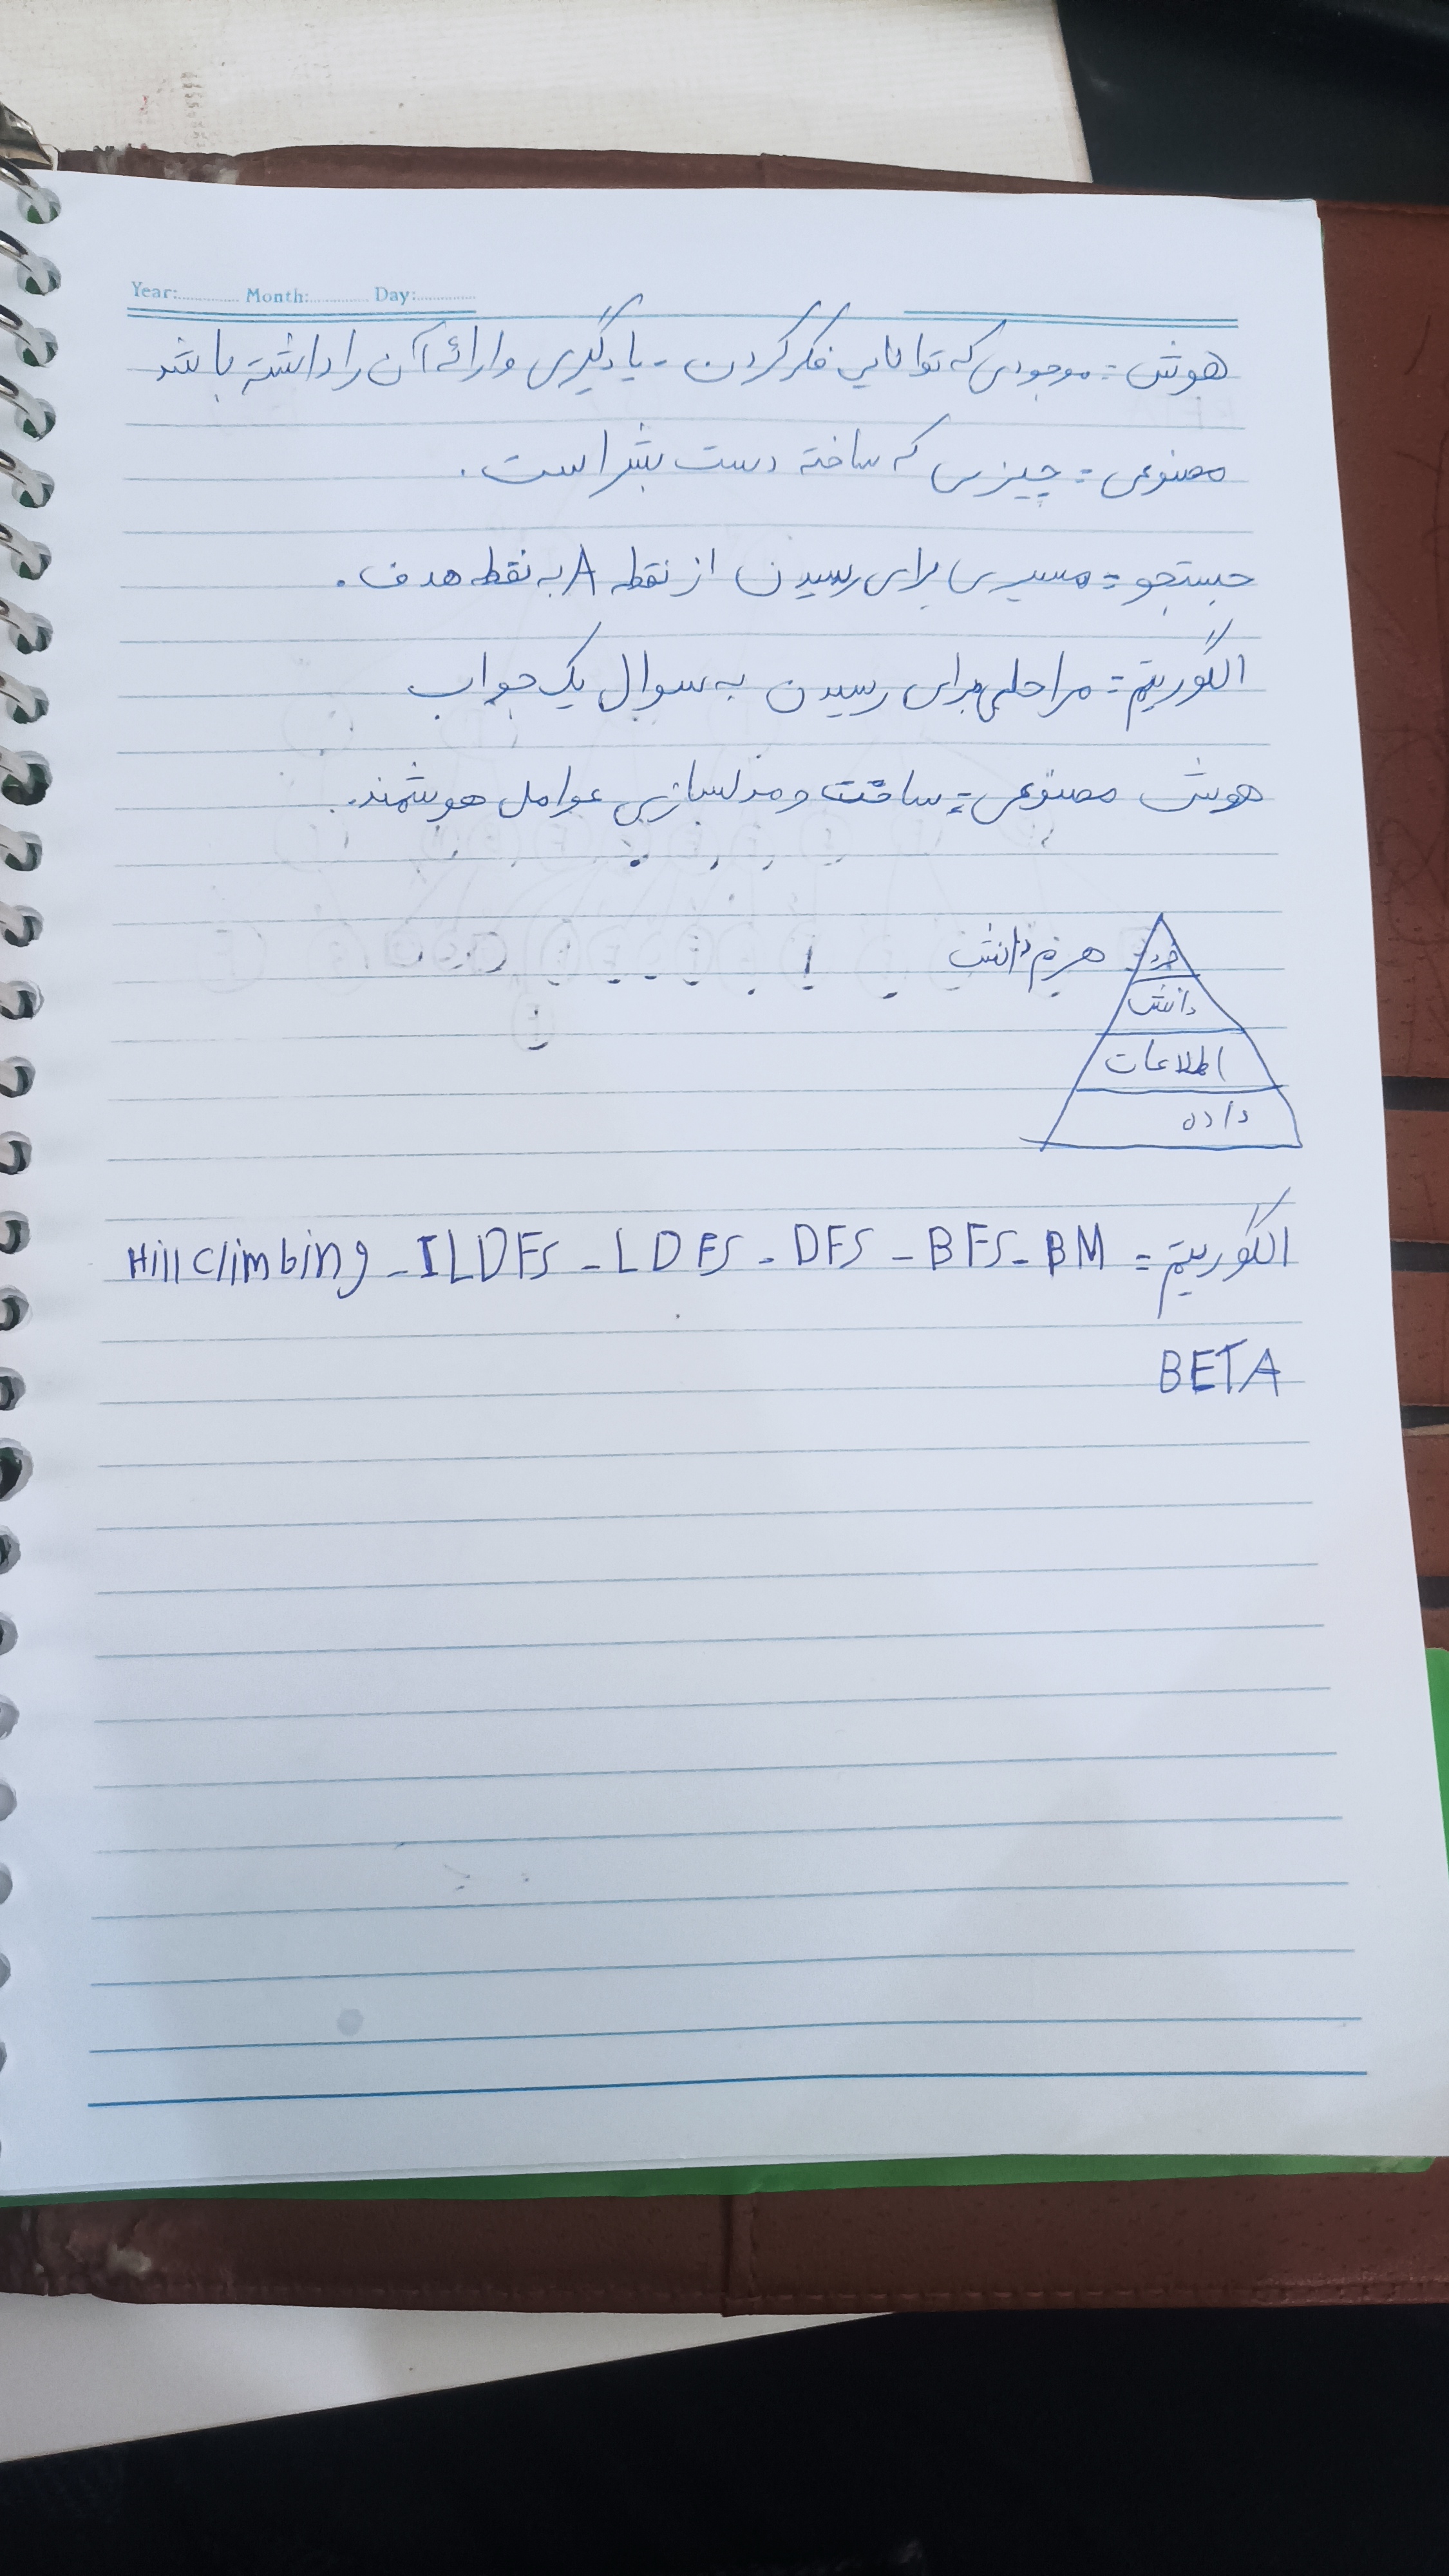 Year: Month: Day:
هوش = موجودی که توانایی فکر کردن - یادگیری و ارائه آن را داشته باشد
مصنوعی = چیزی که ساخته دست بشر است.
جستجو = مسیری برای رسیدن از نقطه A به نقطه هدف.
الگوریتم = مراحلی برای رسیدن به سوال یک جواب
هوش مصنوعی = ساخت و مدلسازی عوامل هوشمند.
خرد هرم دانش
دانش
اطلاعات
داده
الگوریتم = BM - BFS - DFS - LDFS - ILDFS - Hill Climbing
BETA